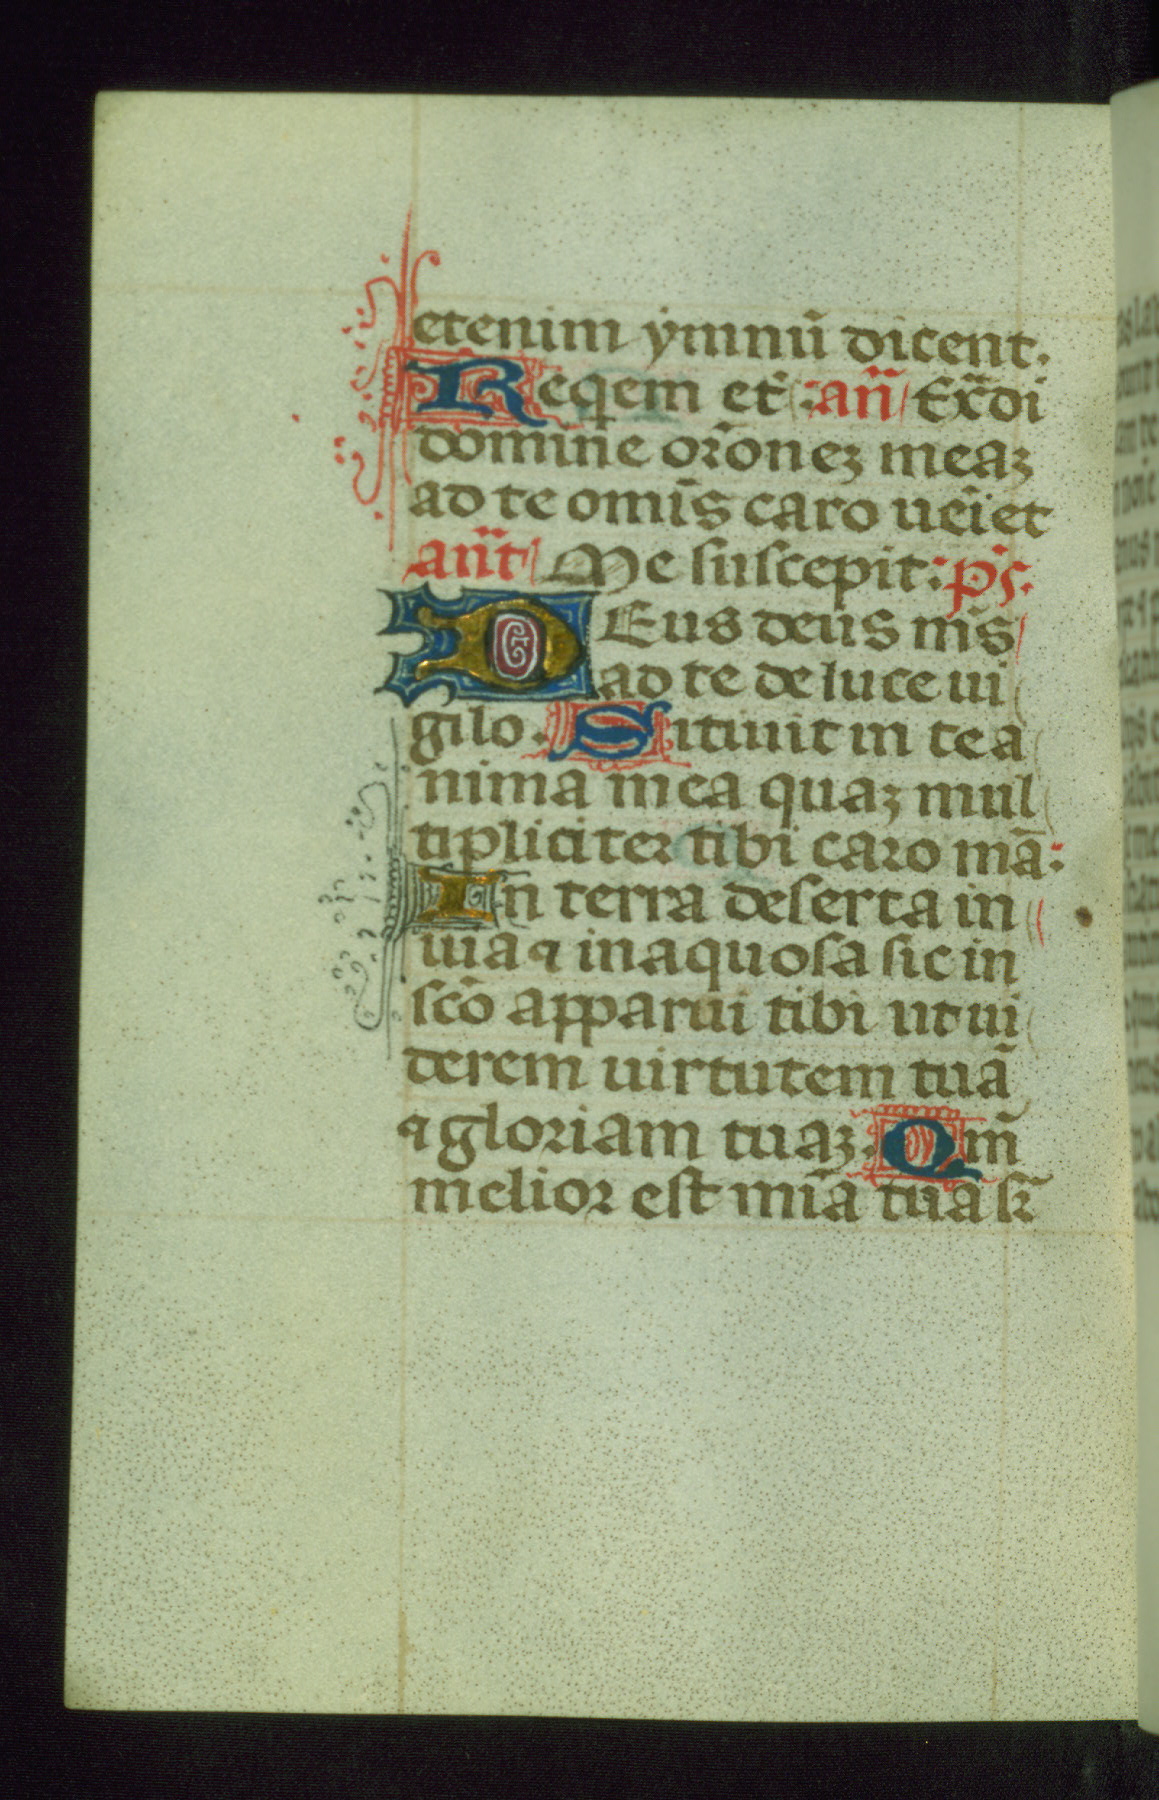 etenim ymnū dicent.
Reqem et̄ : an̄ Exdi
domine or̄onez meaz
ad te omīs caro uēiet
an̄t Me suscepit: ps.
DEus deus m̄s
ad te de luce ui
gilo. Sitiuit in te a
nima mea quaz mul
tipliciter tibi caro mā:
In terra deserta in
uia ⁊ inaquosa sic in
sc̄o apparui tibi ut ui
derem uirtutem tuā
⁊ gloriam tuaz. Qm̄
melior est mīa tua sr̄